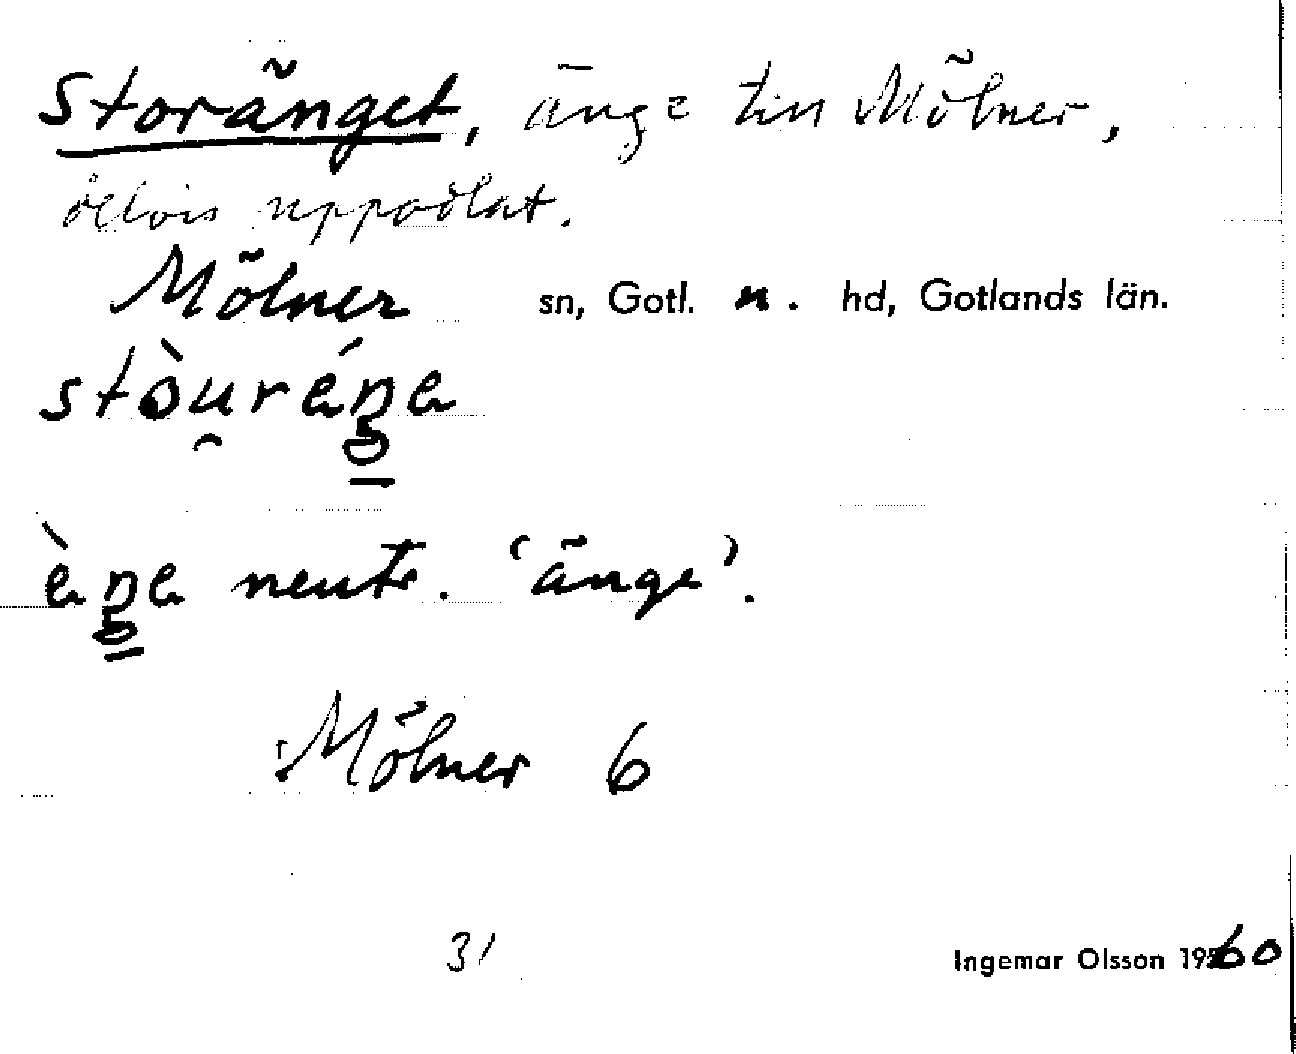 Storänget, änge till Mölner,
delvis uppodlat.
Mölner sn, Gotl. n. hd, Gotlands län.
stòu̯réŋ̲a
èŋ̲a neutr. ‘änge’.
Mölner 6
31
Ingemar Olsson 1960